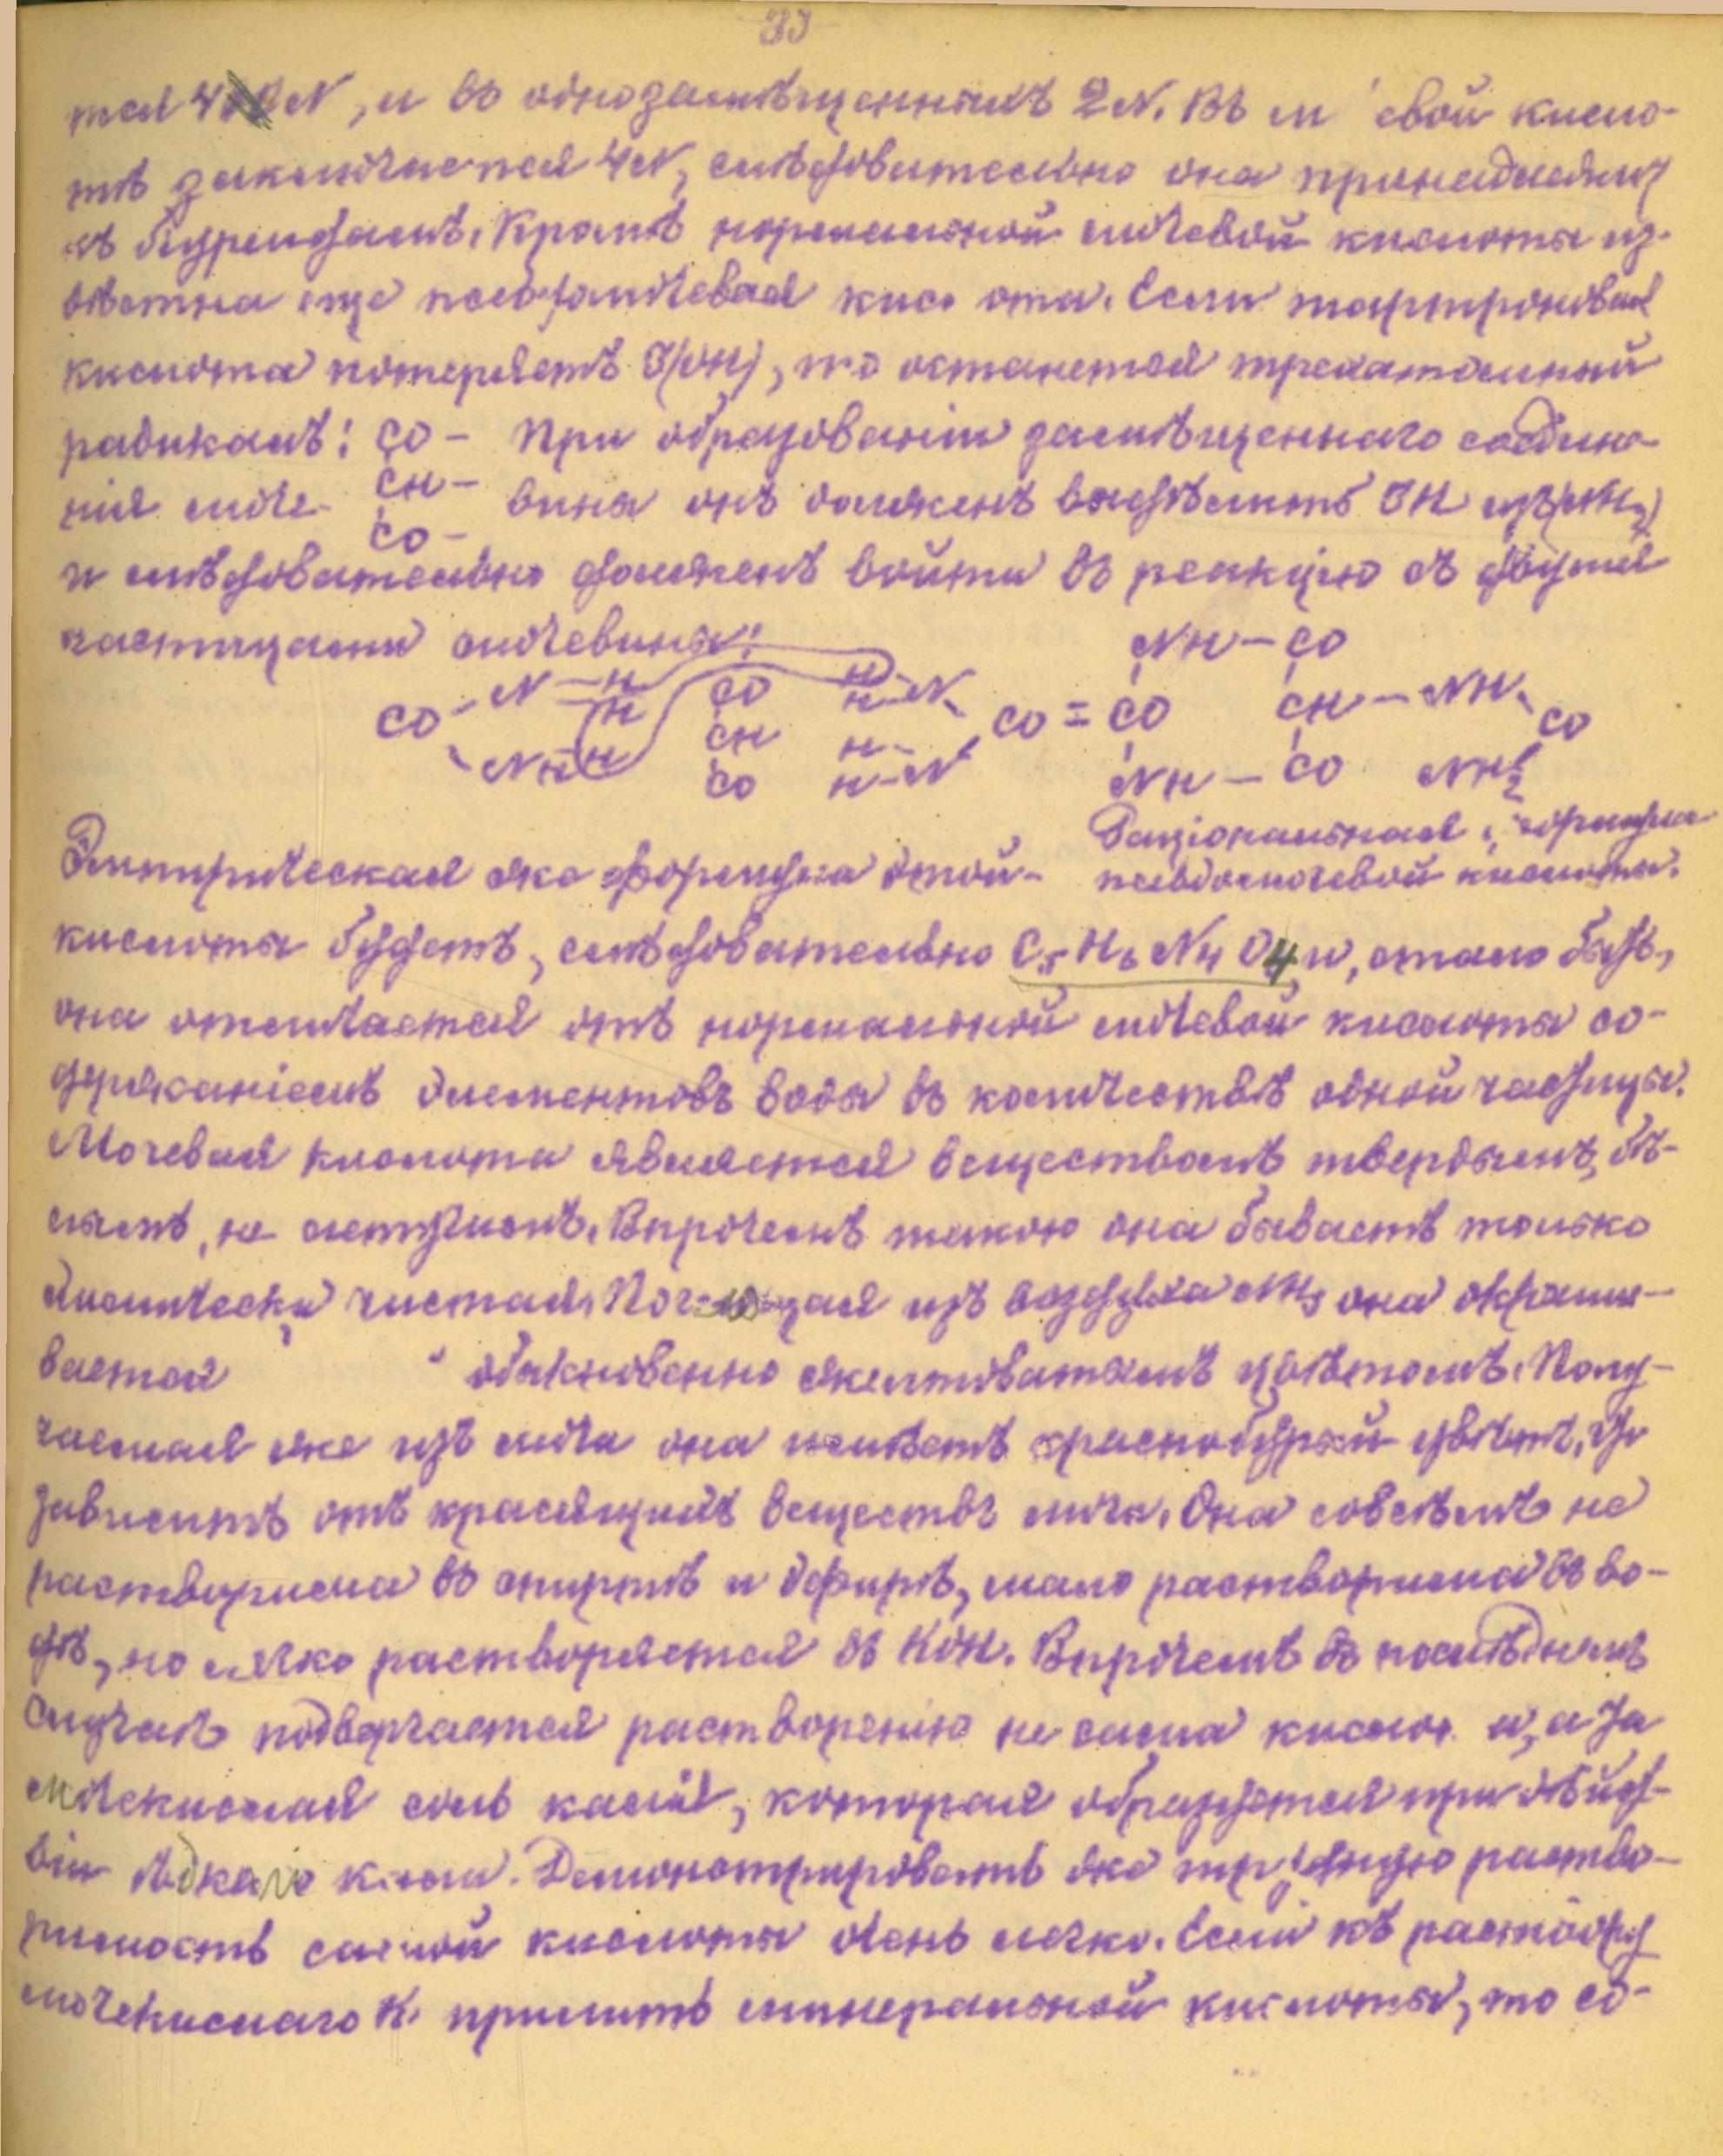 33
тся 4 N, и въ однозамѣщенныхъ 2N. Въ м евой кисло-
тѣ заключается 4N, слѣдовательно она принадлежит
къ біуреидамъ. Кромѣ нормальной мочевой кислоты из-
вѣстна еще псевдомочевая кис ота. Если тартроновая
кислота потеряетъ 3(ОН), то останется трехатомный
радикалъ: СО – При образованіи замѣщеннаго соедине-
нія моче- СН – вина онъ долженъ выдѣлить 3Н изъ (NH2)
СО –
и слѣдовательно долженъ войти въ реакцію съ двумя
частицами мочевины:
NH – CO
CO N – H H CO H H – N CO = CO CH – NH CO
NH H CH H
CO H – N NH – CO NH2
Раціональная формула
Эмпирическая же формула этой – псевдомочевой кислоты.
кислоты будетъ, слѣдовательно C5 H6 N4 O4 и, стало быть,
она отличается отъ нормальной мочевой кислоты со-
держаніемъ элементовъ воды въ количествѣ одной частицы.
Мочевая кислота является веществомъ твердымъ, бѣ-
лымъ, не летучимъ. Впрочемъ такою она бываетъ только
химически чистая. Погл щая изъ воздуха NH3 она окраши-
вается обыкновенно желтоватымъ цвѣтомъ. Полу-
чаемая же изъ мочи она имѣетъ краснобурый цвѣтъ, что
зависитъ отъ красящихъ веществъ мочи. Она совсѣмъ не
растворима въ спиртѣ и эфирѣ, мало растворима въ во-
дѣ, но легко растворяется въ КОН. Впрочемъ въ послѣднемъ
случаѣ подвергается растворенію не сама кислот а, а
мочекислая соль калія, которая образуется при дѣйст-
віи ѣдкаго кали. Демонстрировать же трудную раство-
римость самой кислоты очень легко. Если къ раствору
мочекислаго К. прилить минеральной кислоты, то со-